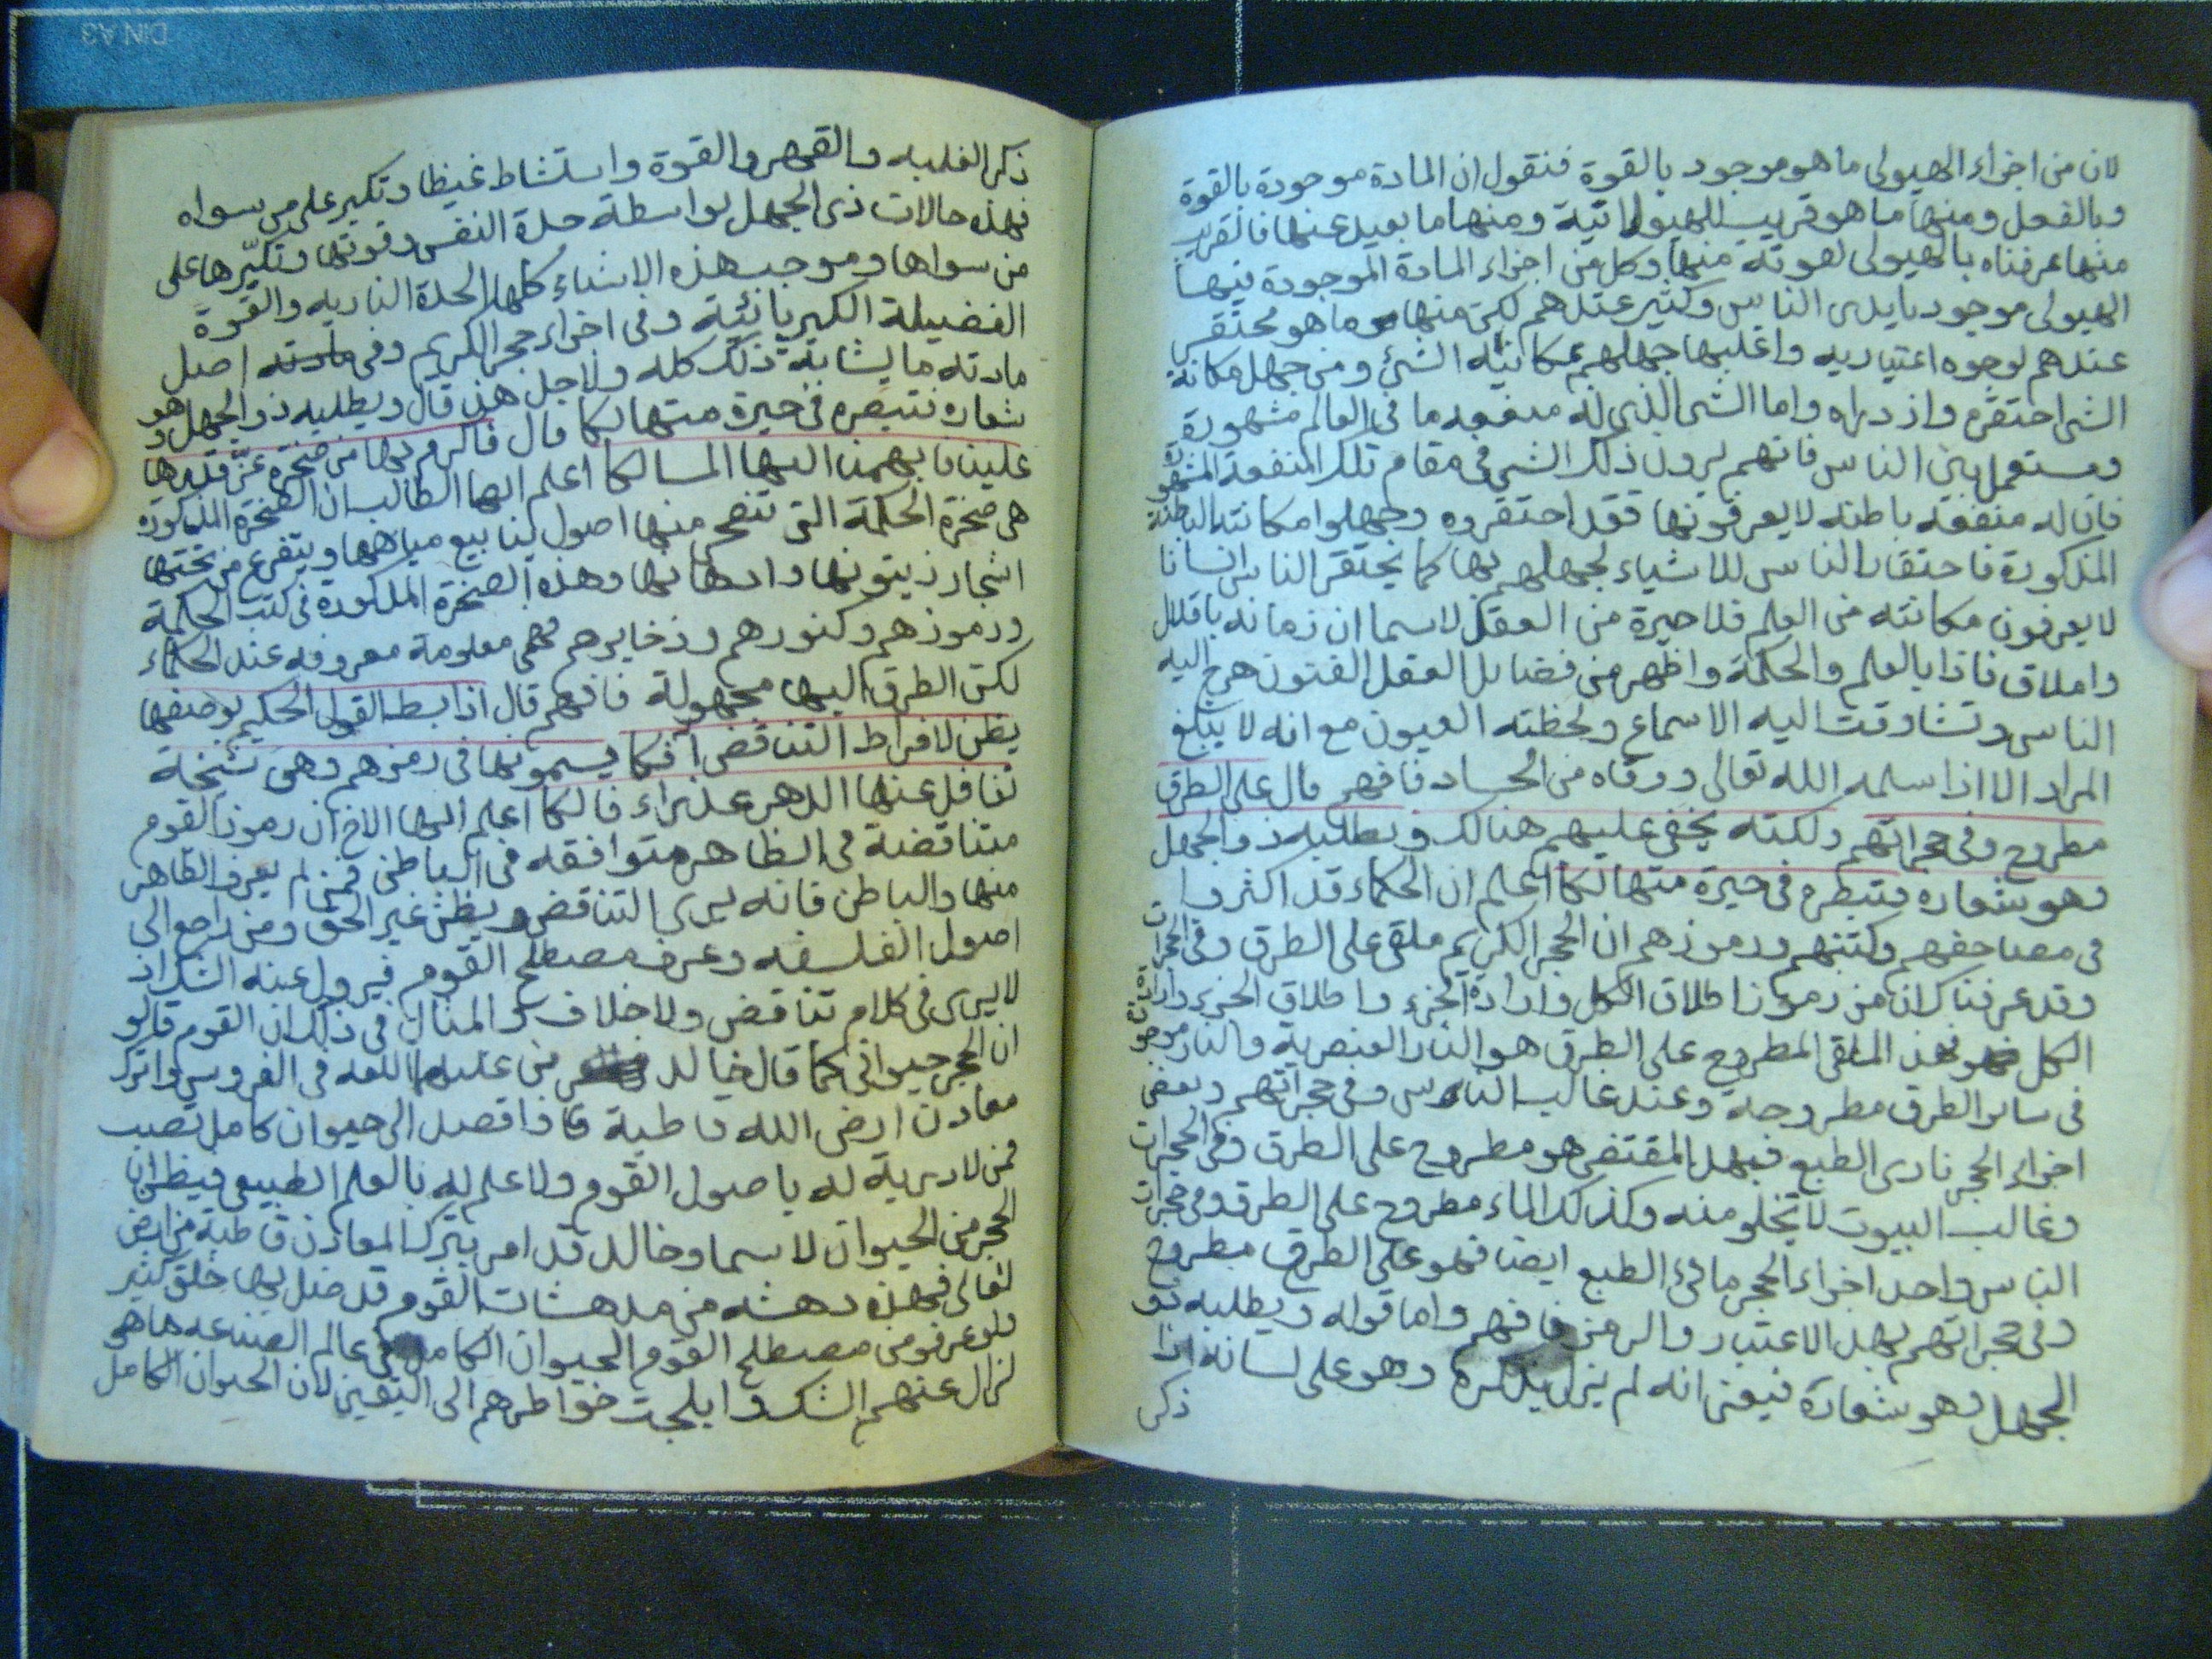 لان من اجزاء الهيولى ما هو موجود بالقوة فنقول ان المادة موجودة بالقوة
وبالفعل ومنها ما هو قريب للهيولانية ومنها ما بعيد عنها فالقريب
منها عرفناه بالهيولى لقوته منها وكل من اجزاء المادة الموجودة فيها
الهيولى موجود بايدى الناس وكثير عندهم لكن منها ما هو محتقر
عندهم لوجوه اعتباريه واغلبها جهلهم بمكانية الشئ ومن جهل مكانة
الشى احتقره وازدراه واما الشى الذى له منفعه ما فى العالم مشهورة
ومستعمل بين الناس فانهم يرون ذلك الشى فى مقام تلك المنفعة المشهورة
فان له منفعة باطنة لا يعرفونها فقد احتقروه وجهلوا مكانته الباطنة
المذكورة فاحتقار الناس للاشياء لجهلهم بها كما يحتقر الناس انسانا
لا يعرفون مكانته من العلم فلا حيرة من العقل لاسيما ان زمانه باقلال
واملاق فاذا بالعلم والحكمة واظهر من فضايل العقل الفنون هرع اليه
الناس وتشاوقت اليه الاسماع ولحظته العيون مع انه لا يبلغ
المراد الا اذا سلمه الله تعالى ووقاه من الحساد فافهم قال على الطرق
مطروح وفى حجراتهم ولكنه يخفى عليهم هنالك ويطلبه ذو الجهل
وهو شعاره فتبصره فى حيرة متهالكا اعلم ان الحكماء قد اكثروا
فى مصاحفهم وكتبهم ورموزهم ان الحجر الكريم ملقى على الطرق وفى الحجرات
وقد عرفناك ان من رموزنا اطلاق الكل وارادة الجزء واطلاق الجزء وارادة
الكل فهذا الملقى المطروح على الطرق هو النار العنصرية والنار موجودة
فى ساير الطرق مطروحة وعند غالب الناس وفى حجراتهم وبعض
اجزاء الحجر نارى الطبع فبهذا المقتضى هو مطروح على الطرق وفى الحجرات
وغالب البيوت لا تخلو منه وكذلك الماء مطروح على الطرق وفى حجرات
الناس واحد اجزاء الحجر مائى الطبع ايضا فهو على الطرق مطروح
وفى حجراتهم بهذا الاعتبار والرمز فافهم واما قوله ويطلبه ذو
الجهل وهو شعارة فيعنى انه لم يزل يذكره وهو على لسانه اذا
ذكر
ذكر الغلبه والقهر والقوة واستشاط غيظا وتكبر على من سواه
فهذه حالات ذى الجهل بواسطة حدة النفس وقوتها وتكبّرها على
من سواها وموجب هذه الاشياء كلها الحدة الناريه والقوة
الغضبيلة الكبريائية وفى اجزاء حجر الكريم وفى مادته اصل
مادته ما يشابه ذلك كله ولاجل هذا قال ويطلبه ذو الجهل وهو
شعاره فتبصره فى حيرة متهالكا قال فاكرم بها من صخرة عزّ قدرها
علينا فابهمنا اليها المسالكا اعلم ايها الطالب ان الصخرة المذكورة
هى صخرة الحكمة التى تنفجر منها اصول ينابيع مياهها ويتفرع من تحتها
اشجار زيتونها وادهانها وهذه الصخرة المذكورة فى كتب الحكمة
ورموزهم وكنوزهم وذخايرهم فهى معلومة معروفه عند الحكماء
لكن الطرق اليها مجهولة فافهم قال اذا بسط القول الحكيم بوصفها
يظن لافراط التناقض افكا يسمونها فى رمزهم وهى شيخة
تغافل عنها الدهر عذراء فالكا اعلم ايها الاخ ان رموز القوم
متناقضة فى الظاهر متوافقه فى الباطن فمن لم يعرف الظاهر
منها والباطن فانه يرى التناقض ويظن غير الحق ومن راجع الى
اصول الفلسفه وعرف مصطلح القوم فيزول عنه الشك اذ
لا يرى فى كلام تناقض ولا خلاف والمثال فى ذلك ان القوم قالو
ان الحجر حيوانى كما قال خالد من عليه الله فى الفردوس واترك
معادن ارض الله قاطبة فاذا قصد الى حيوان كامل تصب
فمن لا دربة له باصول القوم ولا علم له بالعلم الطبيعى فيظن ان
الحجر من الحيوان لاسيما وخالد قد امر بترك المعادن قاطبة من ارض
تعالى فهذه دهشه من مدهشات القوم قد ضل بها خلق كثير
ولو عرفو من مصطلح القوم الحيوان الكامل فى عالم الصنعه ما هى
لزال عنهم الشك وابلجت خواطرهم الى اليقين لان الحيوان الكامل